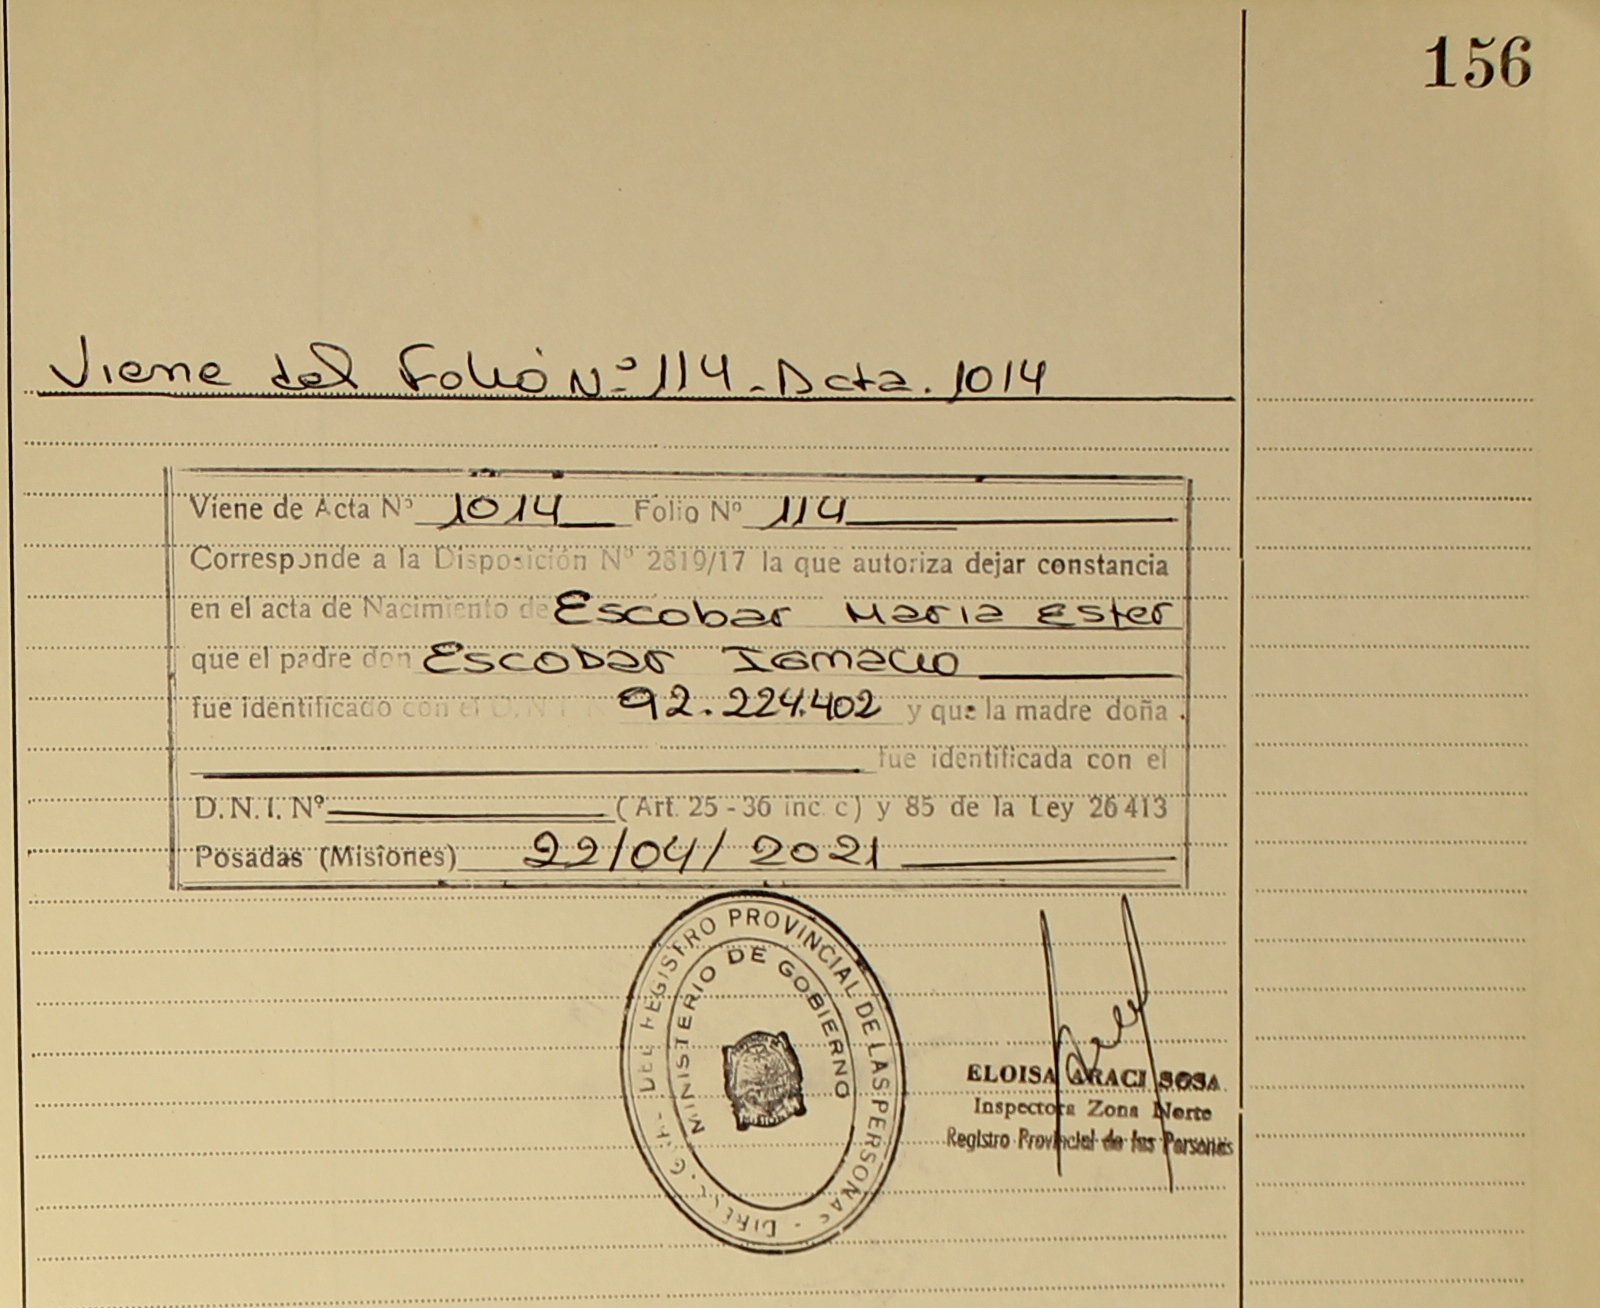 156
Viene del Folio Nº 114 - Acta. 1014
Viene de Acta Nº 1014 Folio Nº 114
Corresponde a la Disposición Nº 2819/17 la que autoriza dejar constancia
en el acta de Nacimiento de Escobar Maria Ester
que el padre don Escobar Ignacio
fue identificado con el D.N.I. 92.224.402 y que la madre doña
fue identificada con el
D.N.I. Nº (Art. 25 - 36 inc. c) y 85 de la Ley 26413
Posadas (Misiones) 22/04/2021
DEL REGISTRO PROVINCIAL DE LAS PERSONAS
MINISTERIO DE GOBIERNO
ELOISA ARACI SOSA
Inspectora Zona Norte
Registro Provincial de las Personas